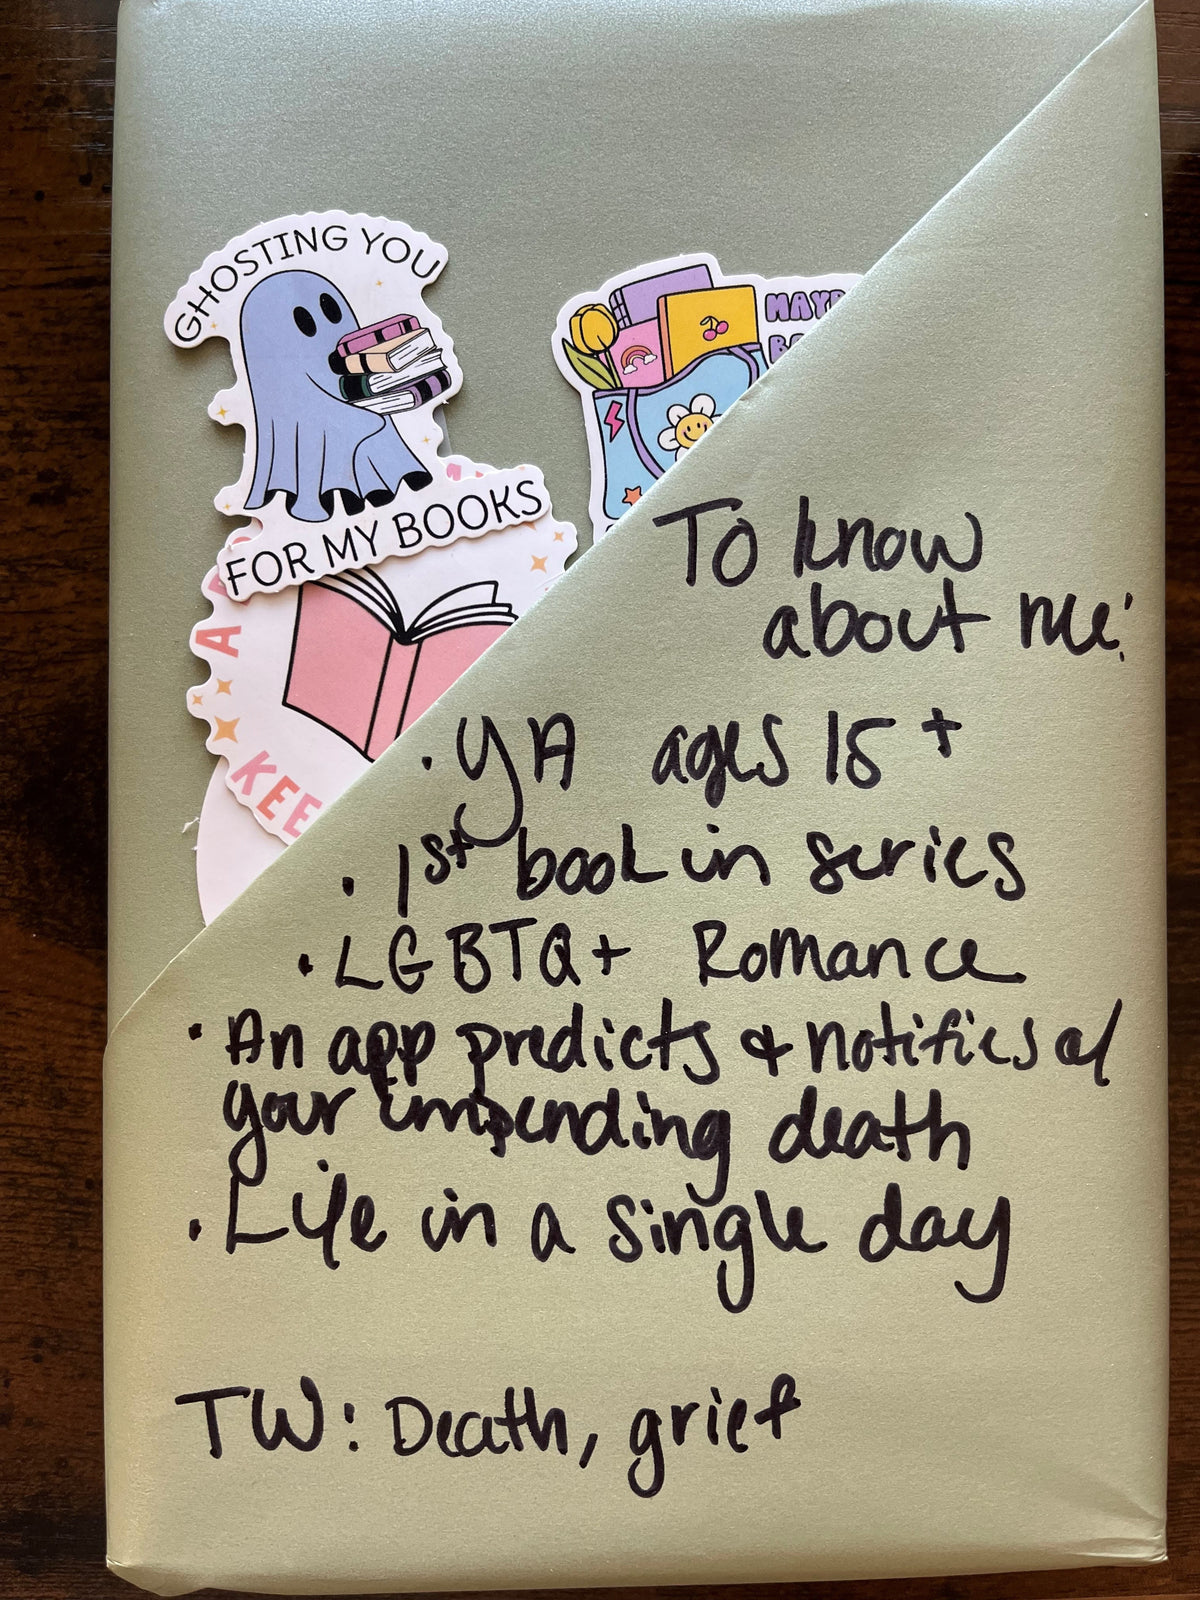 GHOSTING YOU
FOR MY BOOKS
A
KEE
To know
about me:
· YA ages 15+
· 1st book in series
· LGBTQ+ Romance
· An app predicts & notifies of
your impending death
· Life in a single day
TW: Death, grief